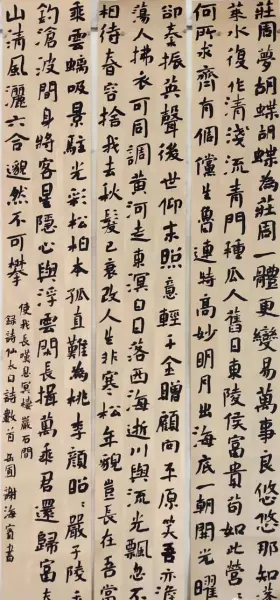 莊周夢胡蝶胡蝶為莊周一體更變易萬事良悠悠那知蓬
萊水復作清淺流青門種瓜人舊日東陵侯富貴苟如此營
何所求齊有倜儻生魯連特高妙明月出海底一朝開光曜
卻秦振英聲後世仰末照意輕千金贈顧向平原笑吾亦澹
蕩人拂衣可同調黃河走東溟白日落西海逝川與流光飄忽不
相待春容捨我去秋髮已衰改人生非寒松年貌豈長在吾當
乘雲螭吸景駐光彩松柏本孤直難為桃李顏昭〻嚴子陵垂
釣滄波間身將客星隱心與浮雲閑長揖萬乘君還歸富春
山清風灑六合邈然不可攀
使我長嘆息冥棲巖石間
錄詩仙太白詩數首 謝海賓書